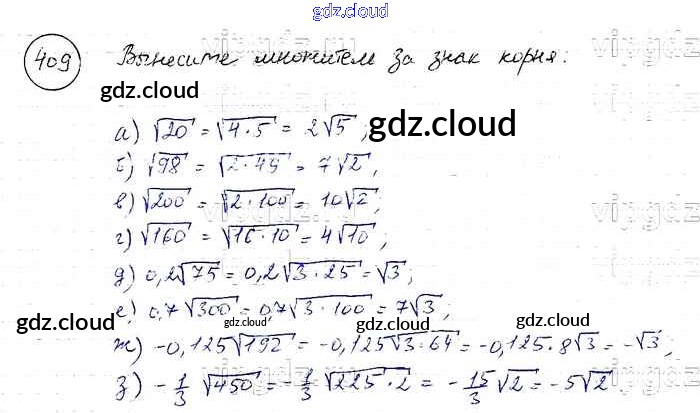 gdz.cloud
409 Вынесите множитель за знак корня:
gdz.cloud
а) √20 = √4·5 = 2√5; gdz.cloud
б) √98 = √2·49 = 7√2;
в) √200 = √2·100 = 10√2;
г) √160 = √16·10 = 4√10;
д) 0,2√75 = 0,2√3·25 = √3;
е) 0,7√300 = 0,7√3·100 = 7√3;
gdz.cloud gdz.cloud gdz.cloud gdz.cloud
ж) -0,125√192 = -0,125√3·64 = -0,125·8√3 = -√3;
з) -1/3 √450 = -1/3 √225·2 = -15/3 √2 = -5√2